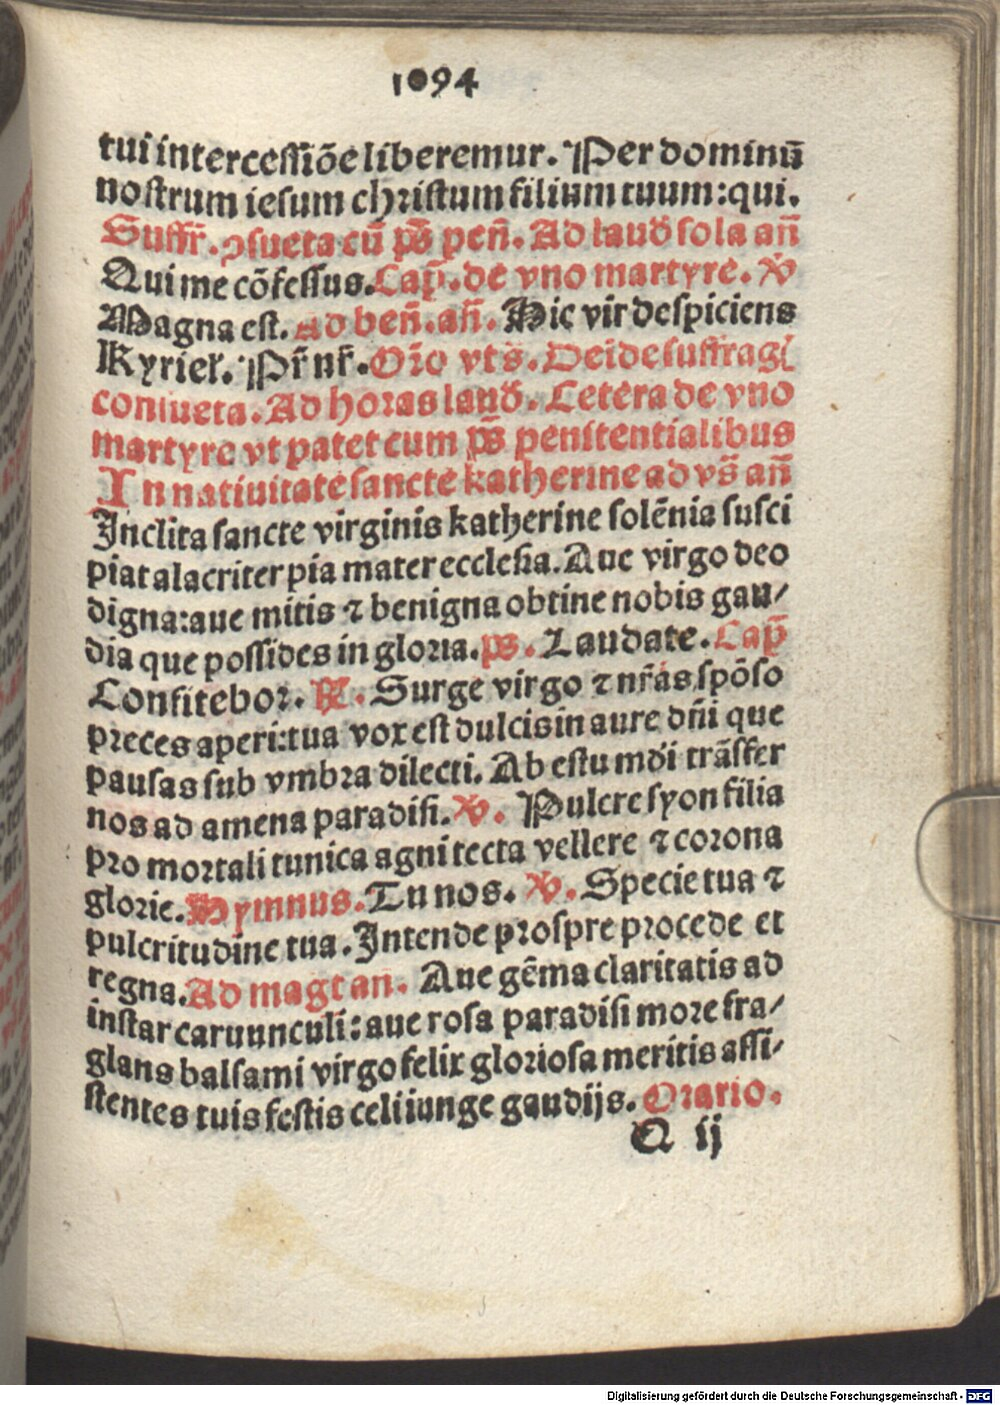 1094
tui intercessiõe liberemur. Per dominū
nostrum iesum christum filium tuum: qui.
Suffr̃. ꝯsueta cũ ps̃ peñ. Ad laud̃ sola añ
Qui me cõfessus. Cap̃. de vno martyre. ℣
Magna est. Ad beñ. añ. Hic vir despiciens
Kyriel̃. Pr̃ nr̃. Oro̅ vt s̃. Deide suffragĩ
consueta. Ad horas laud̃. Cetera de vno
martyre vt patet cum ps̃ penitentialibus
In natiuitate sancte katherine ad vs̃ añ
Inclita sancte virginis katherine solẽnia susci
piat alacriter pia mater ecclesia. Aue virgo deo
digna: aue mitis ⁊ benigna obtine nobis gau/
dia que possides in gloria. ps. Laudate. Cap̃
Confitebor. ℟. Surge virgo ⁊ nr̃as spõso
preces aperi: tua vox est dulcis in aure dñi que
pausas sub vmbra dilecti. Ab estu mũdi trãsfer
nos ad amena paradisi. ℣. Pulcre syon filia
pro mortali tunica agni tecta vellere ⁊ corona
glorie. Hymnus. Tu nos. ℣. Specie tua ⁊
pulcritudine tua. Intende prospre procede et
regna. Ad magt an. Aue gẽma claritatis ad
instar caruunculi: aue rosa paradisi more fra/
glans balsami virgo felix gloriosa meritis assi/
stentes tuis festis celi iunge gaudijs. Oratio.
Q ij
Digitalisierung gefördert durch die Deutsche Forschungsgemeinschaft - DFG